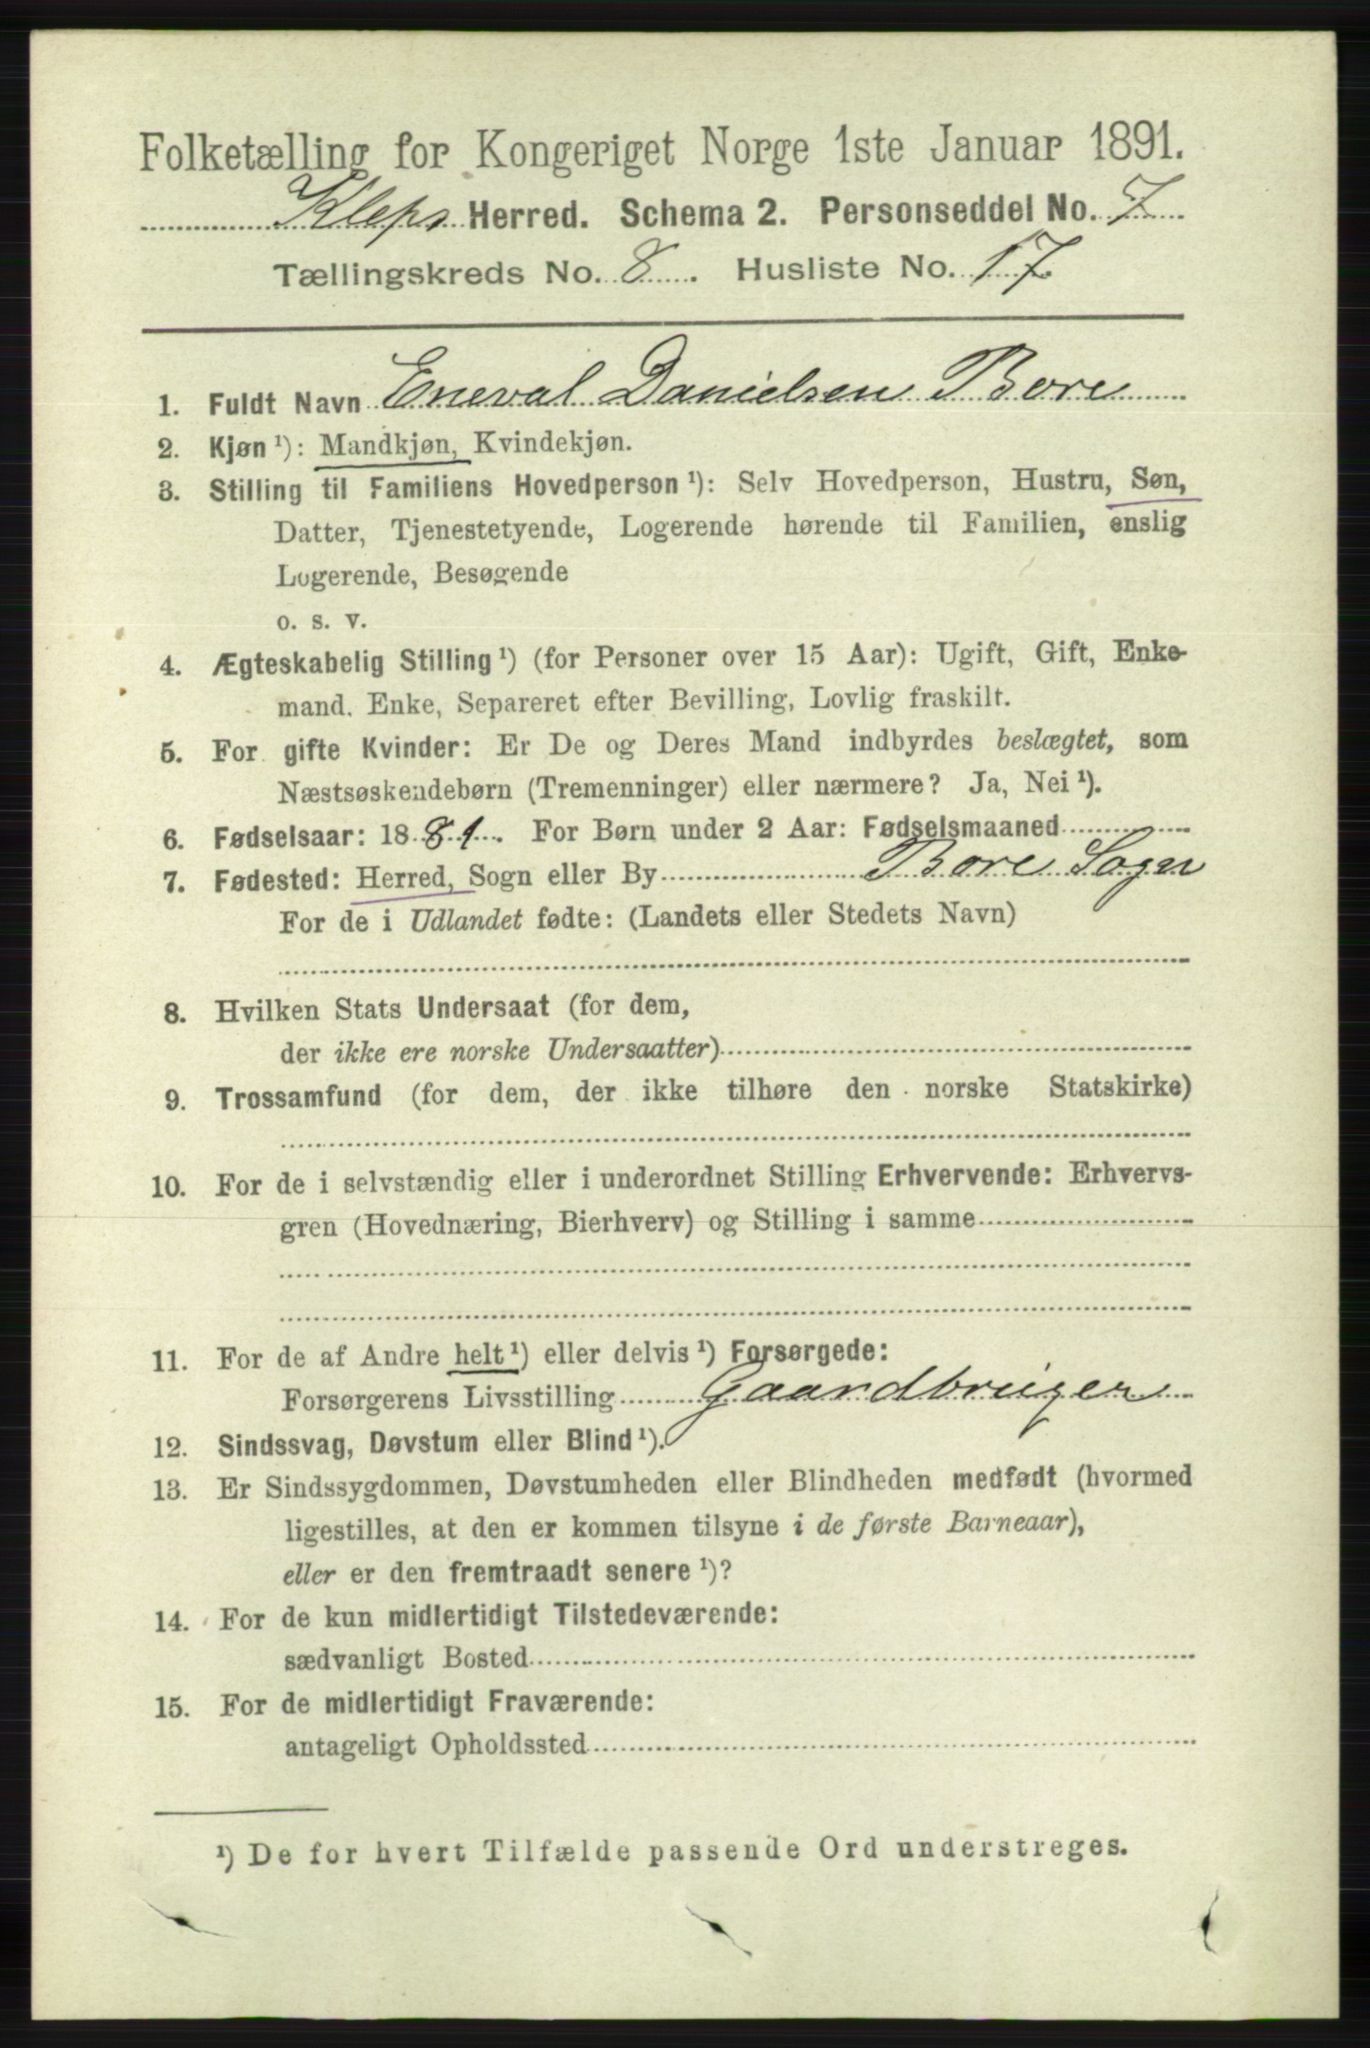 Folketælling for Kongeriget Norge 1ste Januar 1891.
Kleps Herred. Schema 2. Personseddel No. 7
Tællingskreds No. 8. Husliste No. 17
1. Fuldt Navn Eneval Danielsen Bore
2. Kjøn ¹): Mandkjøn, Kvindekjøn.
3. Stilling til Familiens Hovedperson ¹): Selv Hovedperson, Hustru, Søn,
Datter, Tjenestetyende, Logerende hørende til Familien, enslig
Logerende, Besøgende
o. s. v.
4. Ægteskabelig Stilling ¹) (for Personer over 15 Aar): Ugift, Gift, Enke-
mand. Enke, Separeret efter Bevilling, Lovlig fraskilt.
5. For gifte Kvinder: Er De og Deres Mand indbyrdes beslægtet, som
Næstsøskendebørn (Tremenninger) eller nærmere? Ja, Nei ¹).
6. Fødselsaar: 1881. For Børn under 2 Aar: Fødselsmaaned
7. Fødested: Herred, Sogn eller By Bore Sogn
For de i Udlandet fødte: (Landets eller Stedets Navn)
8. Hvilken Stats Undersaat (for dem,
der ikke ere norske Undersaatter)
9. Trossamfund (for dem, der ikke tilhøre den norske Statskirke)
10. For de i selvstændig eller i underordnet Stilling Erhvervende: Erhvervs-
gren (Hovednæring, Bierhverv) og Stilling i samme
11. For de af Andre helt ¹) eller delvis ¹) Forsørgede:
Forsørgerens Livsstilling Gaardbruger
12. Sindssvag, Døvstum eller Blind ¹).
13. Er Sindssygdommen, Døvstumheden eller Blindheden medfødt (hvormed
ligestilles, at den er kommen tilsyne i de første Barneaar),
eller er den fremtraadt senere ¹)?
14. For de kun midlertidigt Tilstedeværende:
sædvanligt Bosted
15. For de midlertidigt Fraværende:
antageligt Opholdssted
¹) De for hvert Tilfælde passende Ord understreges.